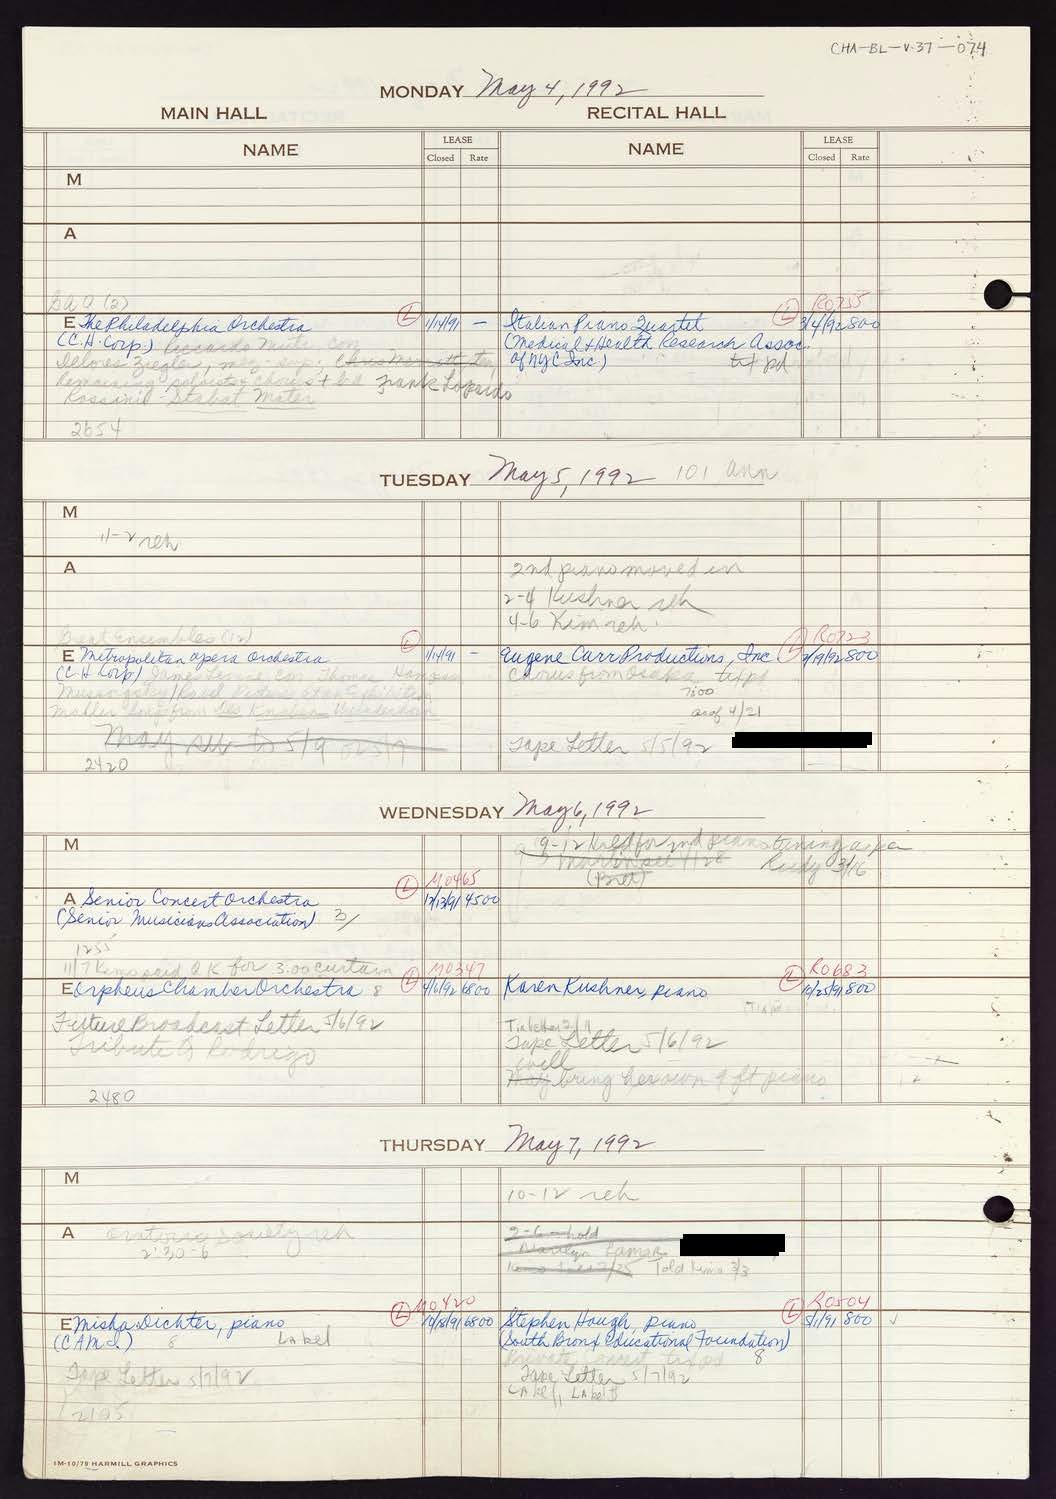 CHA-BL-V.37-074
MONDAY May 4, 1992
MAIN HALL RECITAL HALL
NAME LEASE NAME LEASE
Closed Rate Closed Rate
M
A
(2)
E The Philadelphia Orchestra L 1/14/91 — Italian Piano Quartet L R0755 3/4/92 800
(C.H. Corp.) Riccardo Muti con (Medical + Health Research Assoc.
Delores Ziegler, mezz. Chris Merritt, ten of NYC Inc.) txt pd
remaining soloists + chorus t b a Frank Lopardo
Rossini - Stabat Mater
2654
TUESDAY May 5, 1992 101 Ann
M
11-2 reh
A 2nd piano moved in
2-4 Kushner reh
4-6 Kim reh.
Great Ensembles (12)
E Metropolitan Opera Orchestra L 1/14/91 — Eugene Carr Productions, Inc L R0723 2/19/92 800
(C.H. Corp) James Levine con Thomas Hampson Chorus from Osaka txt pd
Mussorgsky/Ravel Pictures at an Exhibition 7:00
Mahler Songs from Des Knaben Wunderhorn as of 4/21
May 5/9 or 5/7 Tape Letter 5/5/92
2420
WEDNESDAY May 6, 1992
M 9-12 Hold for 2nd piano tuning as per
4/28 Rudy 3/16
(Bret)
A Senior Concert Orchestra L M0465 12/13/91 4500
(Senior Musicians Association) 3/
1255
11/7 Kims said OK for 3:00 curtain
E Orpheus Chamber Orchestra 8 L M0347 4/6/92 6800 Karen Kushner, piano L R0683 10/25/91 800
Future Broadcast Letter 5/6/92
Tribute to Rodrigo Tape Letter 5/6/92
will
May bring her own 9 ft piano
2480
THURSDAY May 7, 1992
M
10-12 reh
A Oratorio Society reh 2-6 - hold
2:30-6 Marilyn
Told Kims 3/3
E Misha Dichter, piano L M0420 10/18/91 6800 Stephen Hough, piano L R0504 5/1/91 800
(CAMI.) 8 Label (South Bronx Educational Foundation)
Private concert txt pd 8
Tape Letter 5/7/92 Tape Letter 5/7/92
Label
2195
1M-10/79 HARMILL GRAPHICS